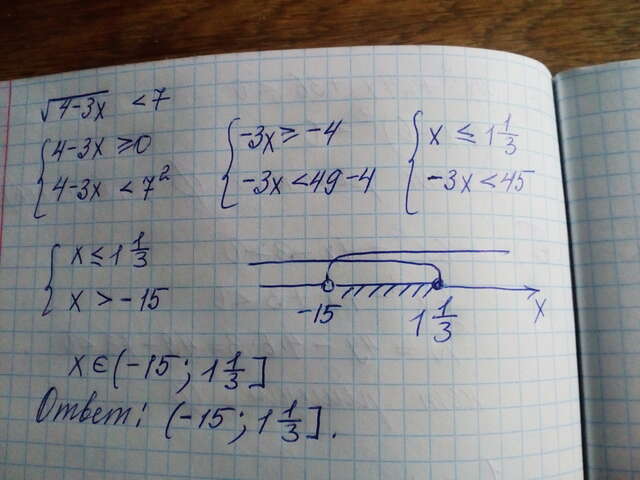 √4-3x < 7
{ 4-3x ≥ 0
{ 4-3x < 7²
{ -3x ≥ -4
{ -3x < 49-4
{ x ≤ 1 1/3
{ -3x < 45
{ x ≤ 1 1/3
{ x > -15
-15 1 1/3 x
x ∈ (-15; 1 1/3]
Ответ: (-15; 1 1/3].